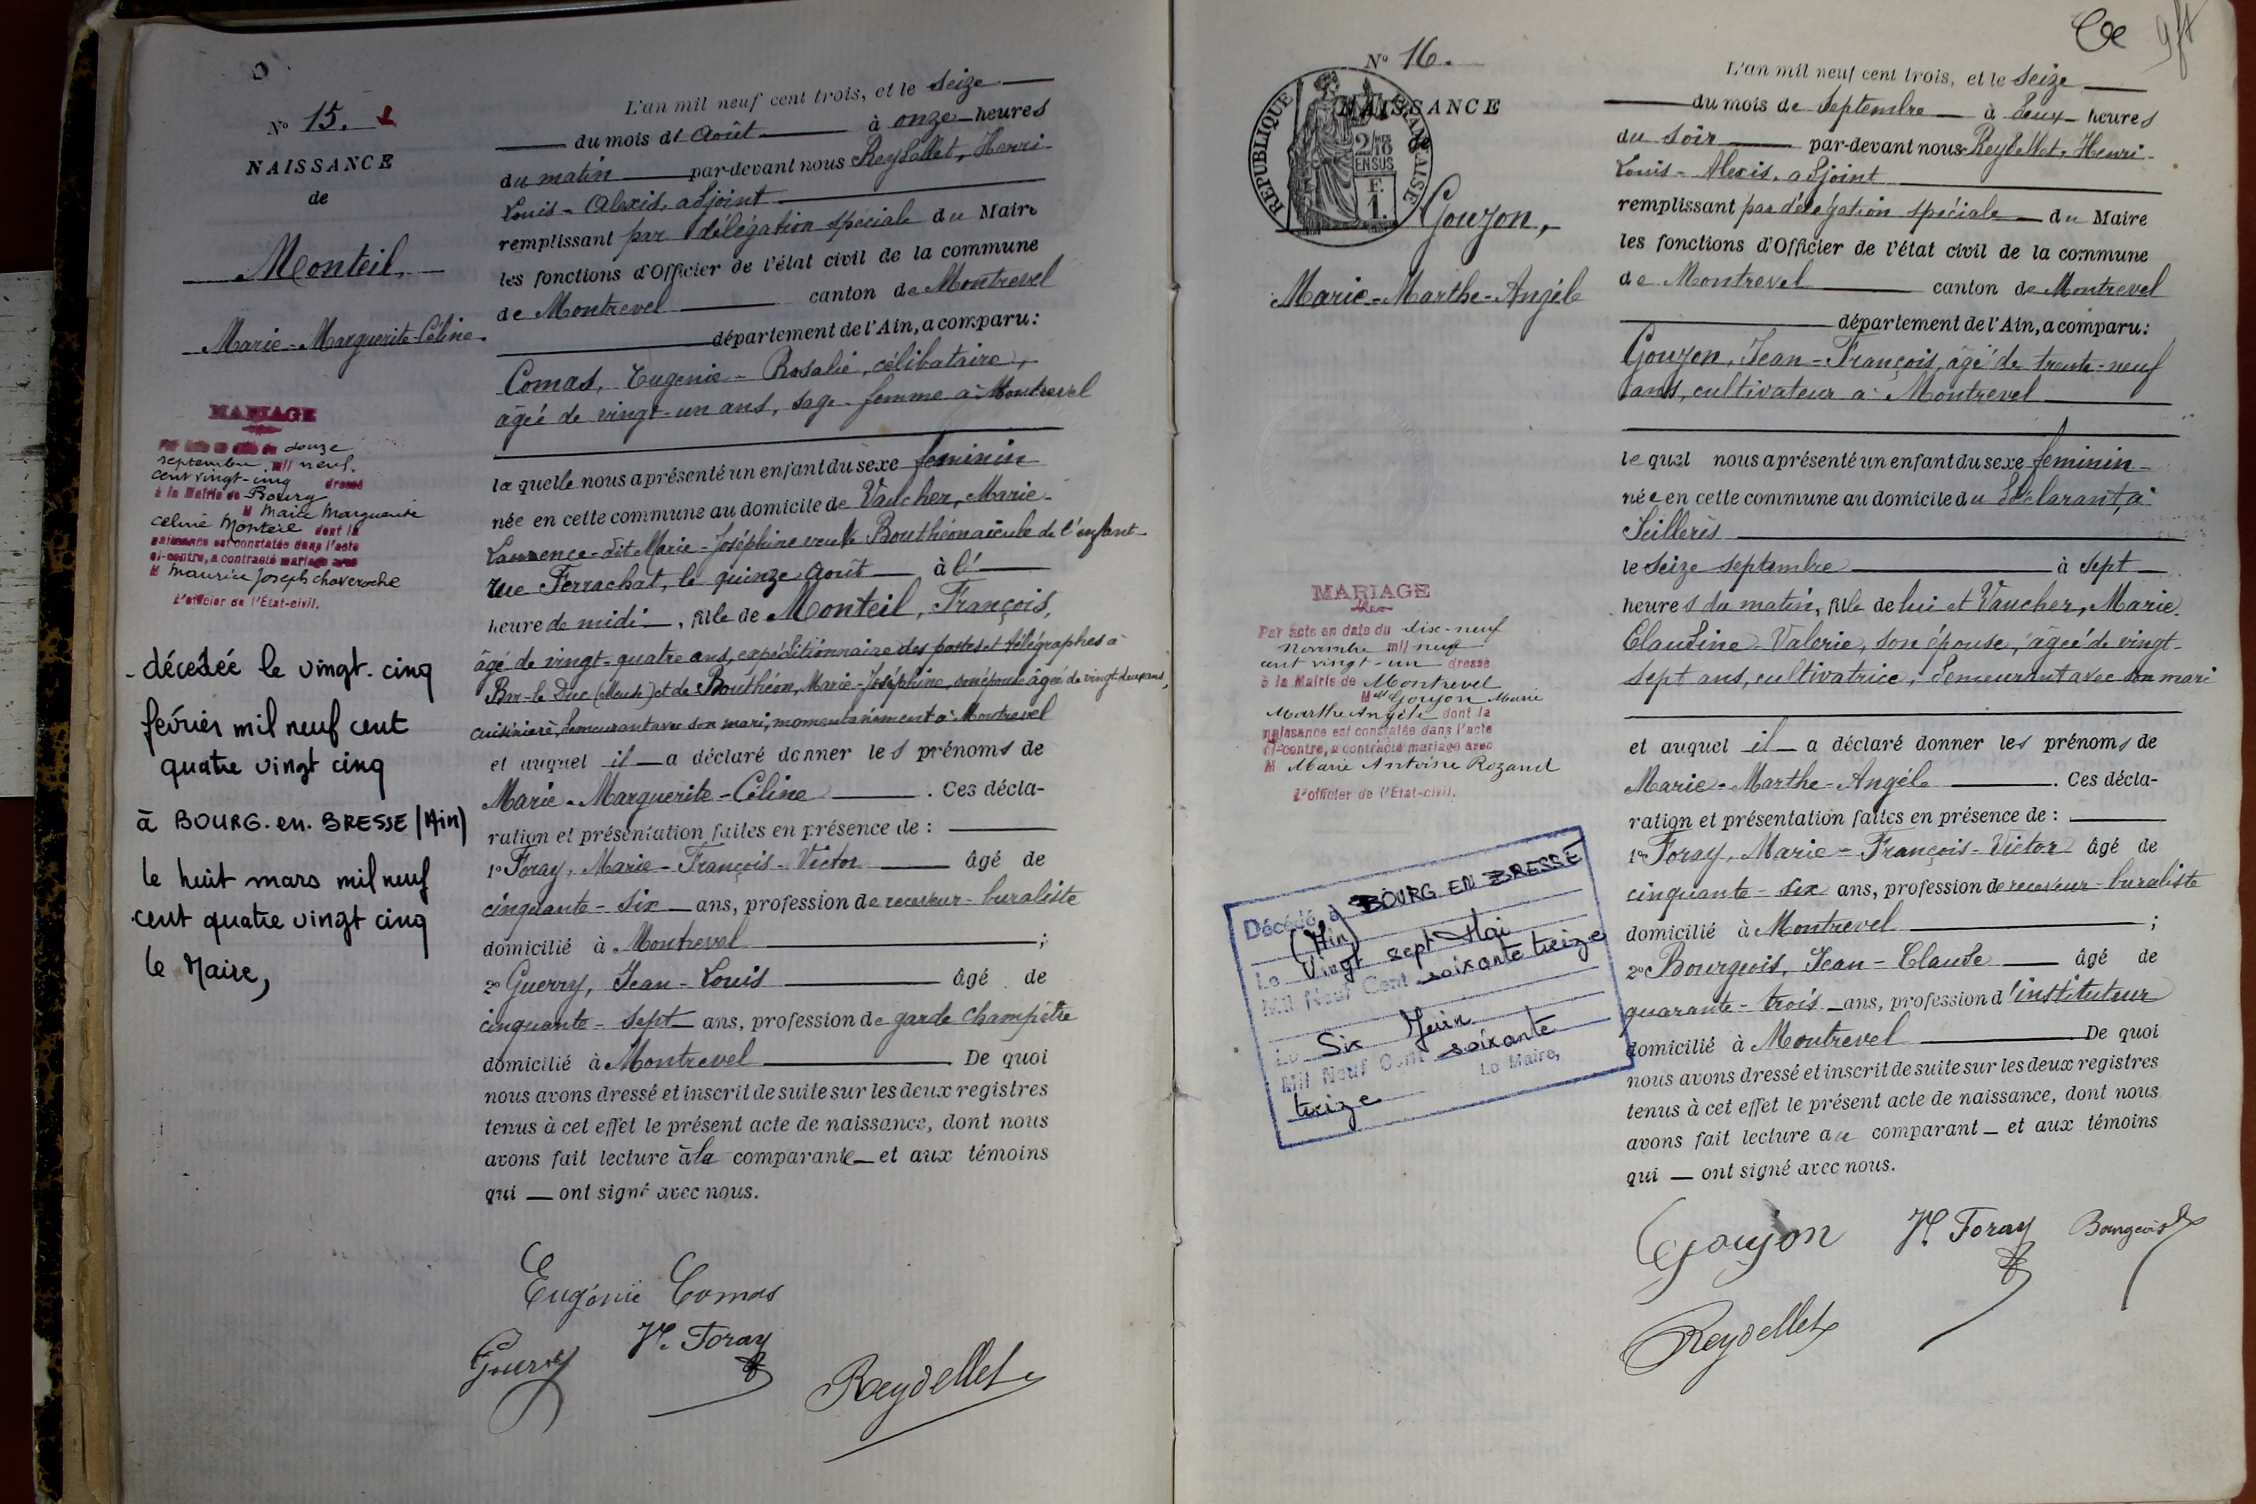 Nº 15.
NAISSANCE
de
Monteil,
Marie-Marguerite-Céline.
MARIAGE
Par acte en date du douze
septembre mil neuf.
cent vingt-cinq dressé
à la Mairie de Bourg
M Marie Marguerite
Céline Monteil dont la
naissance est constatée dans l'acte
ci-contre, a contracté mariage avec
M Maurice Joseph Chaveroche
L'officier de l'État-civil.
- décédée le vingt-cinq
février mil neuf cent
quatre vingt cinq
à BOURG.en.BRESSE (Ain)
le huit mars mil neuf
cent quatre vingt cinq
le Maire,
L'an mil neuf cent trois, et le seize
du mois d'août à onze heures
du matin par-devant nous Reydellet, Henri-
Louis-Alexis, adjoint
remplissant par délégation spéciale du Maire
les fonctions d'Officier de l'état civil de la commune
de Montrevel canton de Montrevel
département de l'Ain, a comparu:
Comas, Eugénie-Rosalie, célibataire,
âgée de vingt-un ans, sage-femme à Montrevel
laquelle nous a présenté un enfant du sexe feminin
née en cette commune au domicile de Vaucher, Marie-
Laurence-dit Marie-Joséphine veuve Bouthéon aïeule de l'enfant
rue Ferrachat, le quinze août à l'
heure de midi, fille de Monteil, François,
âgé de vingt-quatre ans, expéditionnaire des postes et télégraphes à
Bar-le Duc (Meuse) et de Bouthéon, Marie-Joséphine, son épouse âgée de vingt deux ans,
cuisinière, demeurant avec son mari, momentanément à Montrevel
et auquel il a déclaré donner les prénoms de
Marie-Marguerite-Céline. Ces décla-
ration et présentation faites en présence de :
1º Foray, Marie-François-Victor âgé de
cinquante-six ans, profession de receveur-buraliste
domicilié à Montrevel ;
2º Guerry, Jean-Louis âgé de
cinquante-sept ans, profession de garde champêtre
domicilié à Montrevel De quoi
nous avons dressé et inscrit de suite sur les deux registres
tenus à cet effet le présent acte de naissance, dont nous
avons fait lecture à la comparante et aux témoins
qui ont signé avec nous.
Eugénie Comas
Guerry Vr. Foray
Reydellet
Nº 16.
NAISSANCE
RÉPUBLIQUE FRANÇAISE
2/10
EN SUS
F.
1.
Goujon,
Marie-Marthe-Angèle
MARIAGE
Par acte en date du dix-neuf
Novembre mil neuf
cent vingt-un dressé
à la Mairie de Montrevel
Mlle Goujon Marie
Marthe Angèle dont la
naissance est constatée dans l'acte
ci-contre, a contracté mariage avec
M Marie Antoine Rozand
L'officier de l'État-civil.
Décédé à BOURG EN BRESSE
(Ain)
Le Vingt sept Mai
Mil Neuf Cent soixante treize
Le Six Juin
Mil Neuf Cent soixante
treize Le Maire,
L'an mil neuf cent trois, et le seize
du mois de Septembre à deux heures
du soir par-devant nous Reydellet, Henri-
Louis-Alexis, adjoint
remplissant par délégation spéciale du Maire
les fonctions d'Officier de l'état civil de la commune
de Montrevel canton de Montrevel
département de l'Ain, a comparu:
Goujon, Jean-François, âgé de trente-neuf
ans, cultivateur à Montrevel
lequel nous a présenté un enfant du sexe feminin
née en cette commune au domicile du déclarant, à
Seillères
le seize septembre à sept
heures du matin, fille de lui et Vaucher, Marie
Claudine Valerie, son épouse, âgée de vingt-
sept ans, cultivatrice, demeurant avec son mari
et auquel il a déclaré donner les prénoms de
Marie-Marthe-Angèle. Ces décla-
ration et présentation faites en présence de :
1º Foray, Marie-François-Victor âgé de
cinquante-six ans, profession de receveur-buraliste
domicilié à Montrevel ;
2º Bourgeois, Jean-Claude âgé de
quarante-trois ans, profession d'instituteur
domicilié à Montrevel De quoi
nous avons dressé et inscrit de suite sur les deux registres
tenus à cet effet le présent acte de naissance, dont nous
avons fait lecture au comparant et aux témoins
qui ont signé avec nous.
Goujon Vr. Foray Bourgeois
Reydellet